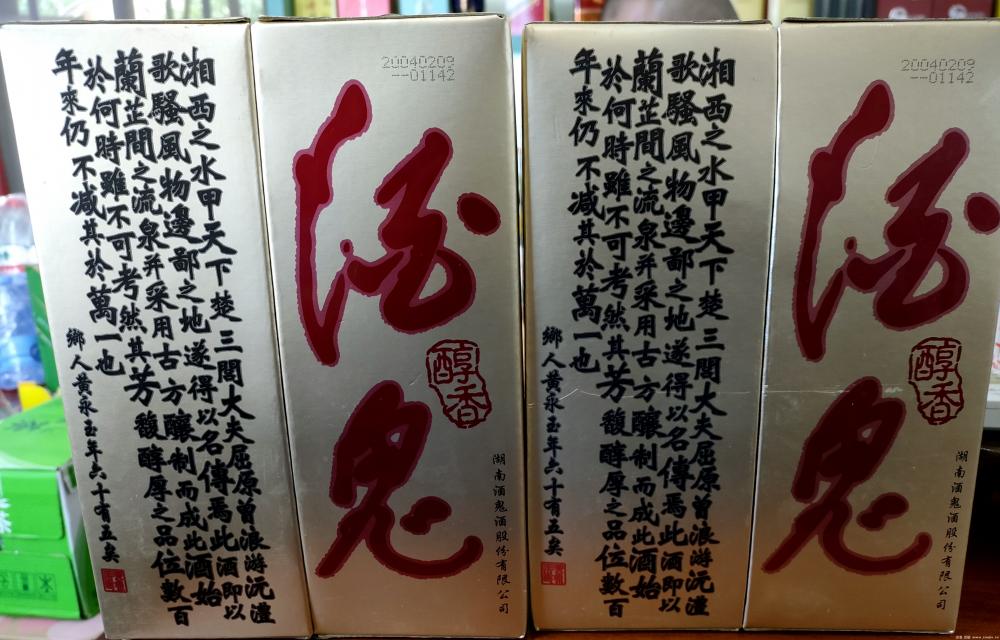 湘西之水甲天下楚三閭大夫屈原曾浪游沅澧
歌騷風物邊鄙之地遂得以名傳焉此酒即以
蘭芷間之流泉并采用古方釀制而成此酒始
於何時雖不可考然其芳馥醇厚之品位數百
年來仍不减其於萬一也
鄉人黄永玉年六十有五矣
20040209
--01142
酒鬼
醇香
湖南酒鬼酒股份有限公司
湘西之水甲天下楚三閭大夫屈原曾浪游沅澧
歌騷風物邊鄙之地遂得以名傳焉此酒即以
蘭芷間之流泉并采用古方釀制而成此酒始
於何時雖不可考然其芳馥醇厚之品位數百
年來仍不减其於萬一也
鄉人黄永玉年六十有五矣
20040209
--01142
酒鬼
醇香
湖南酒鬼酒股份有限公司